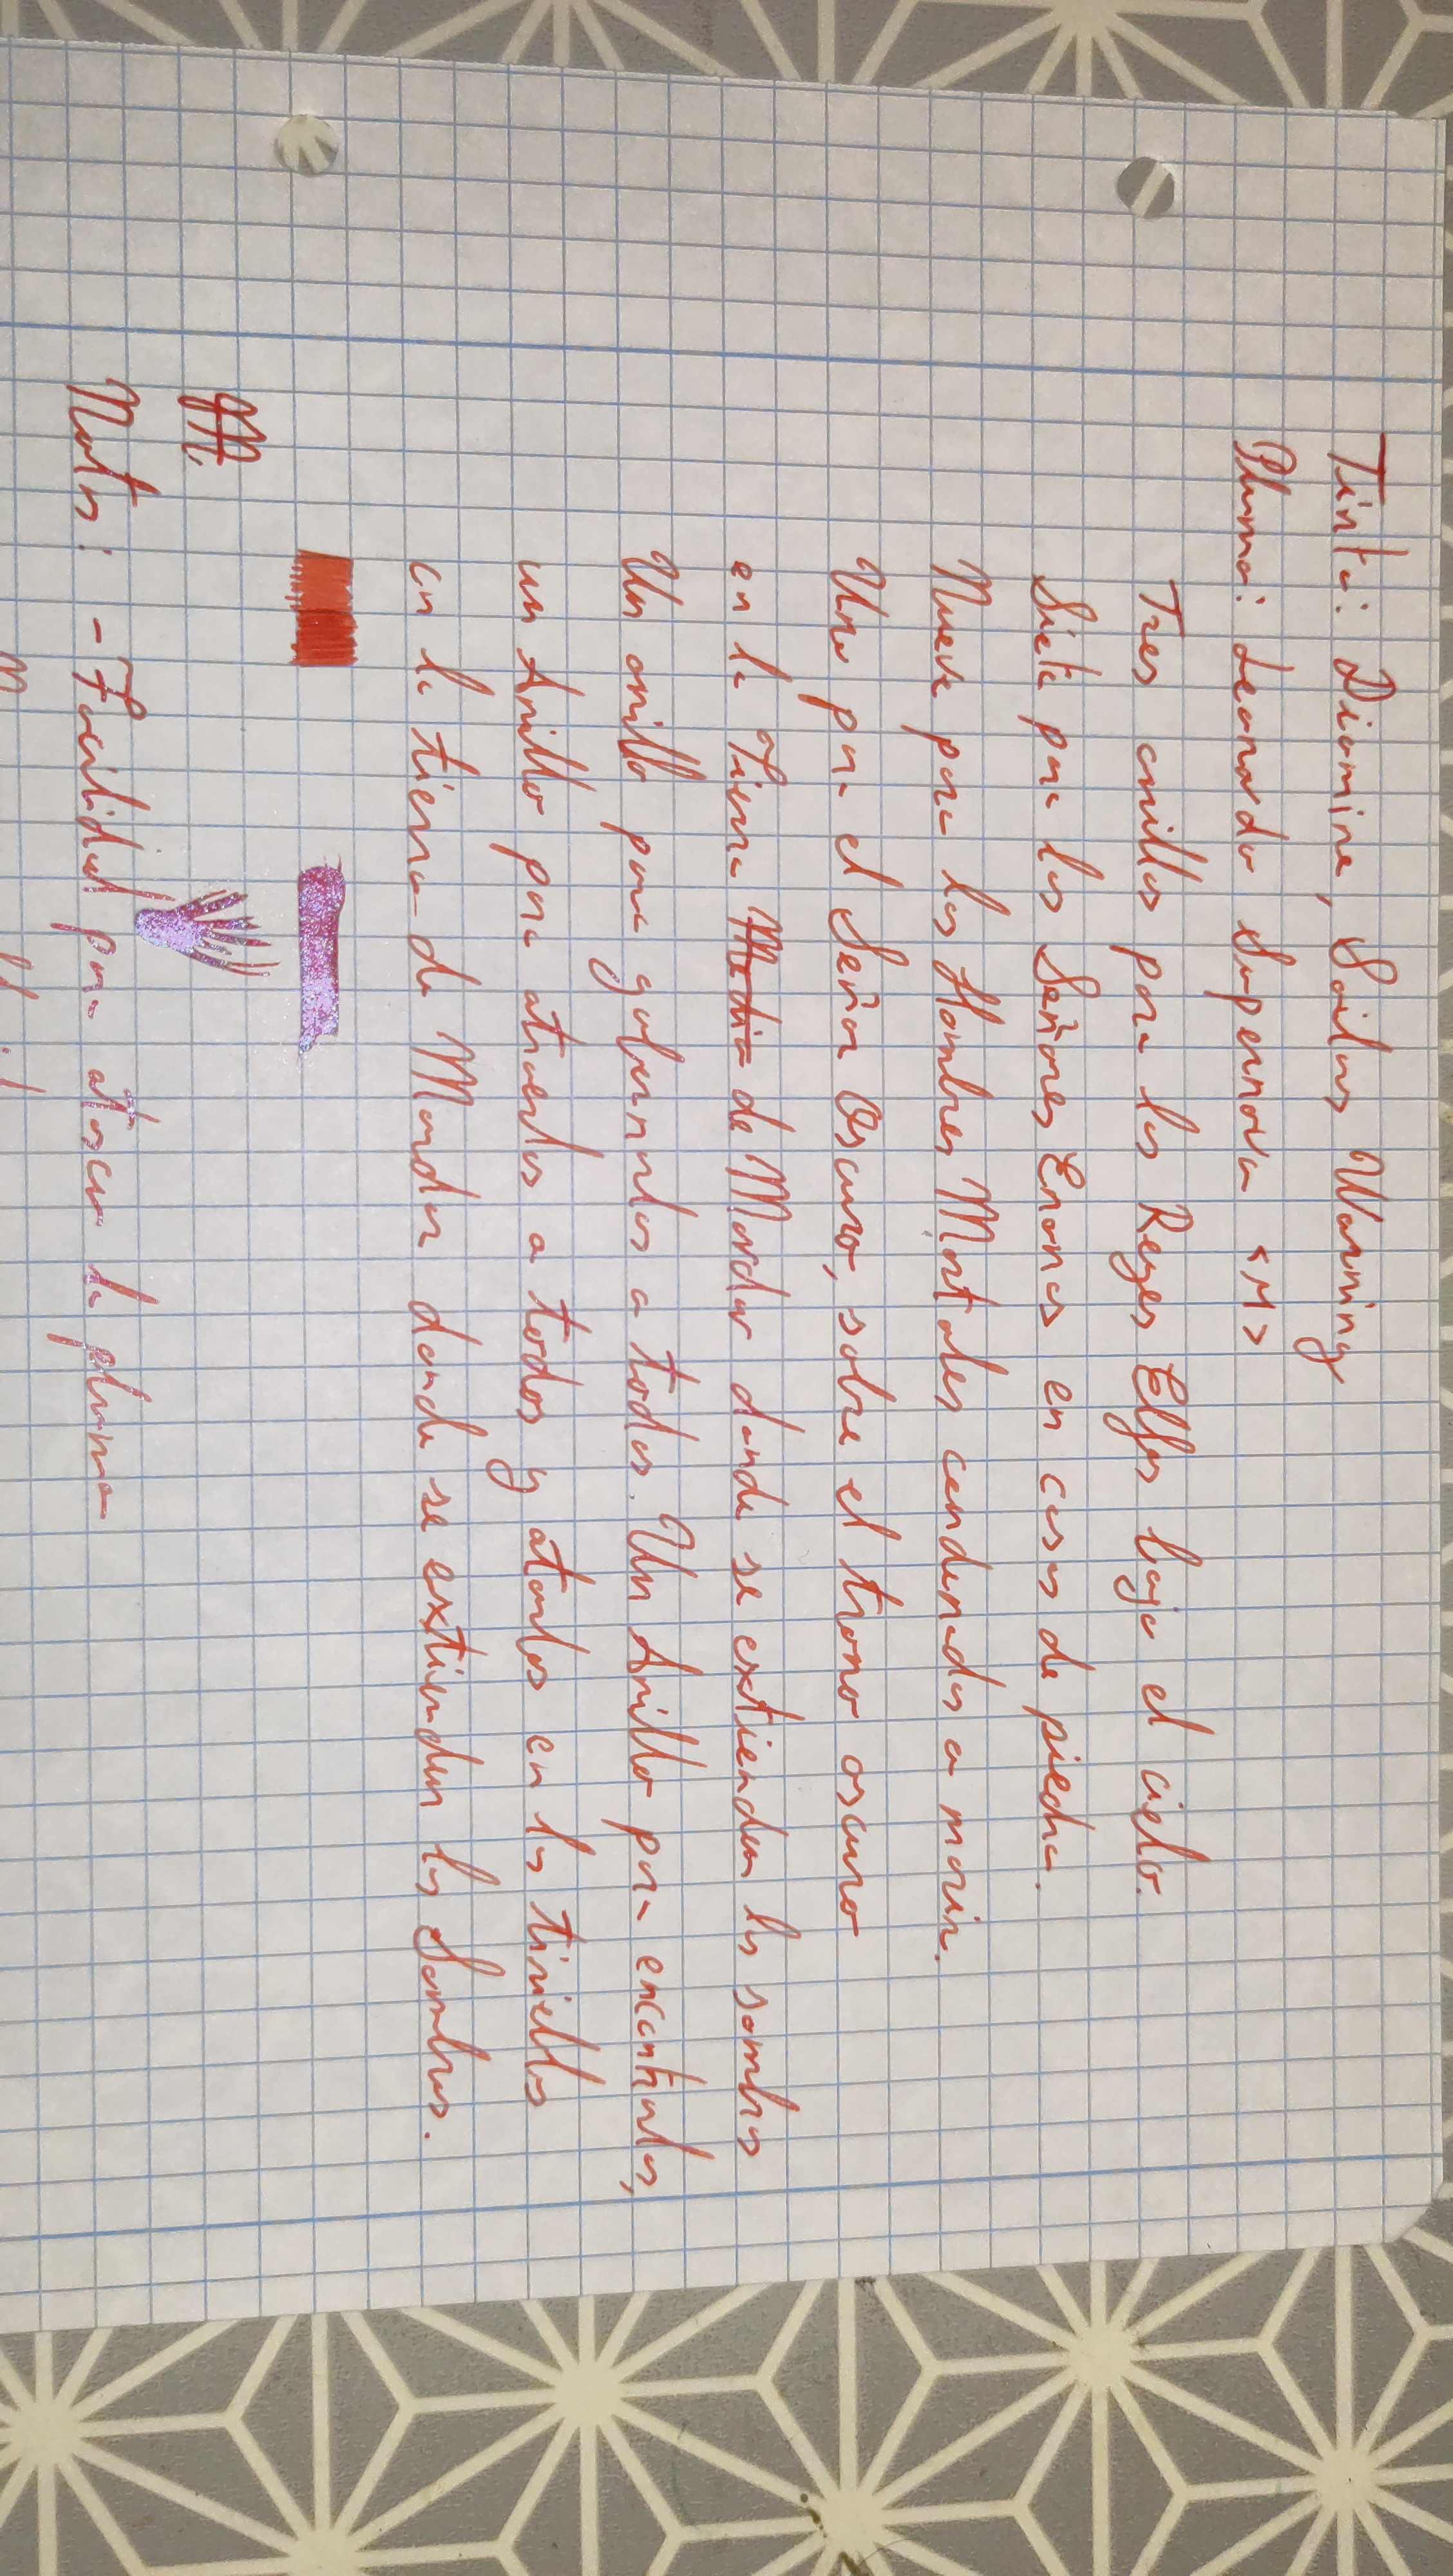 Tinta: Diamine, Sailors Warning
Pluma: Leonardo Supernova <M>
Tres anillos para los Reyes Elfos bajo el cielo.
Siete para los Señores Enanos en casas de piedra.
Nueve para los Hombres Mortales condenados a morir.
Uno para el Señor Oscuro, sobre el trono oscuro
en la Tierra Media de Mordor donde se extienden las sombras
Un anillo para gobernarlos a todos. Un Anillo para encontrarlos,
un Anillo para atraerlos a todos y atarlos en las tinieblas
en la tierra de Mordor donde se extienden las Sombras.
Notas: - Facilidad para atascar la pluma